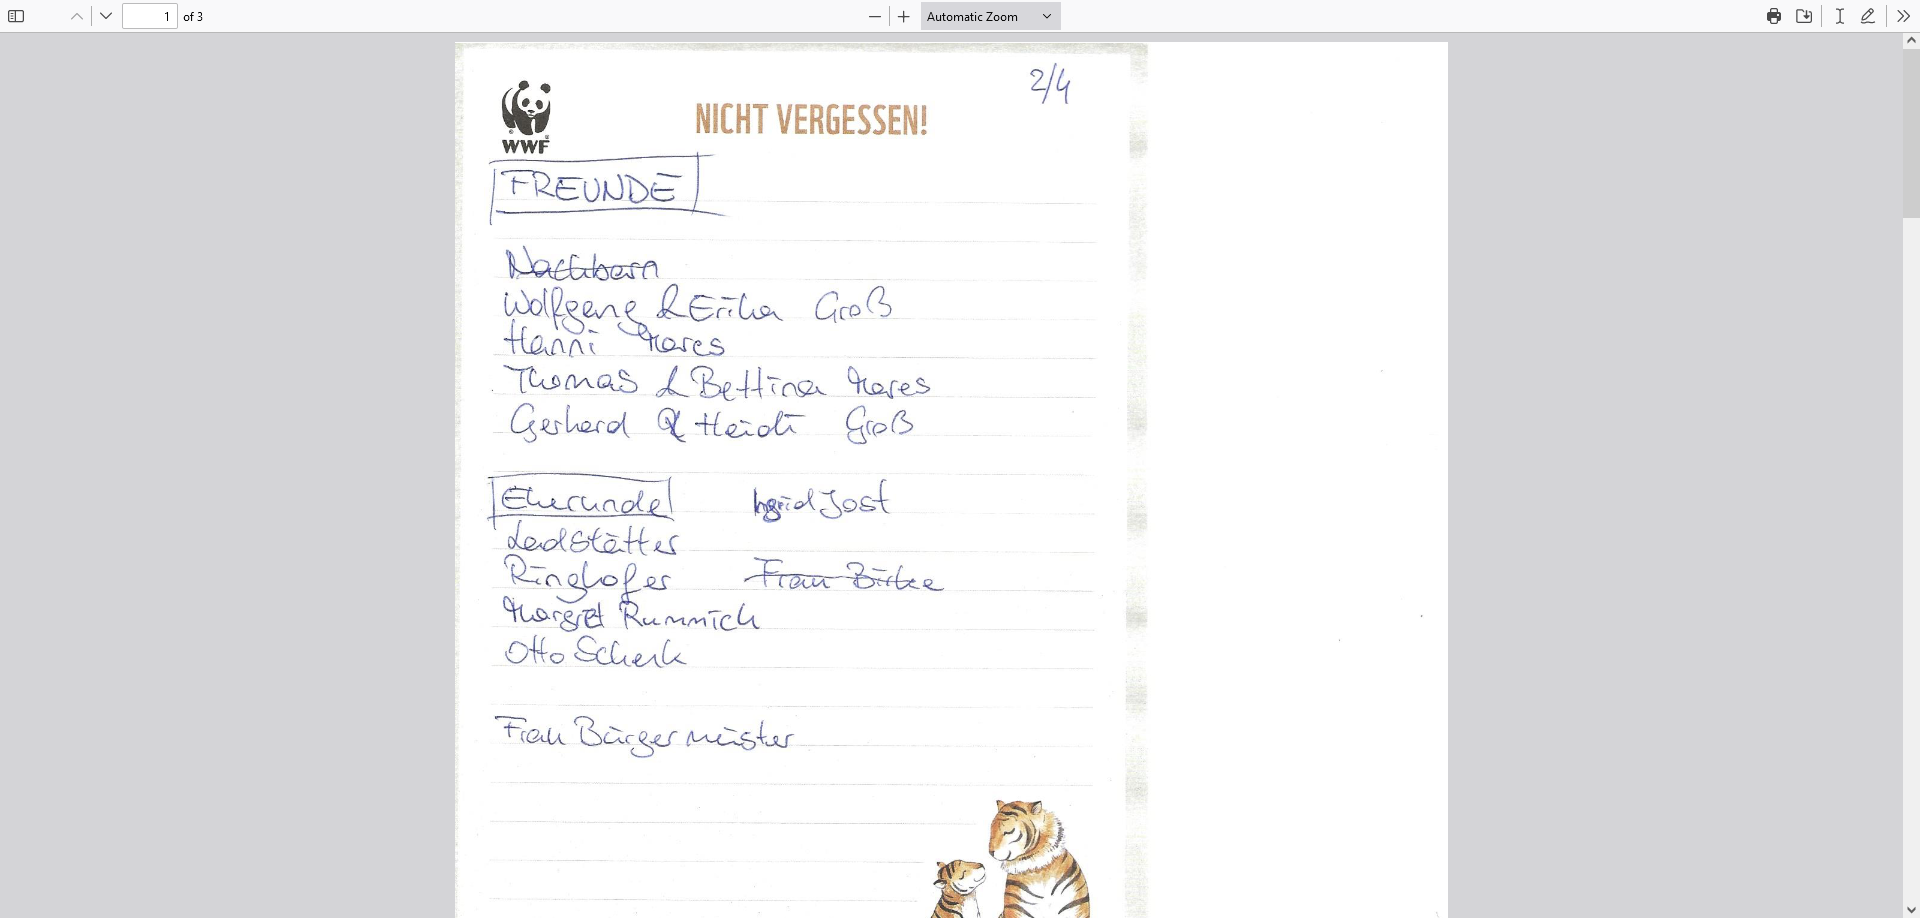 1 of 3 Automatic Zoom
2/4
WWF
NICHT VERGESSEN!
FREUNDE
Nachbarn
Wolfgang & Erika Groß
Hanni Mares
Thomas & Bettina Mares
Gerhard & Heidi Groß
Eherunde Ingrid Jost
Ladstätter
Ringhofer Frau Birke
Margret Rummich
Otto Schenk
Frau Bürgermeister